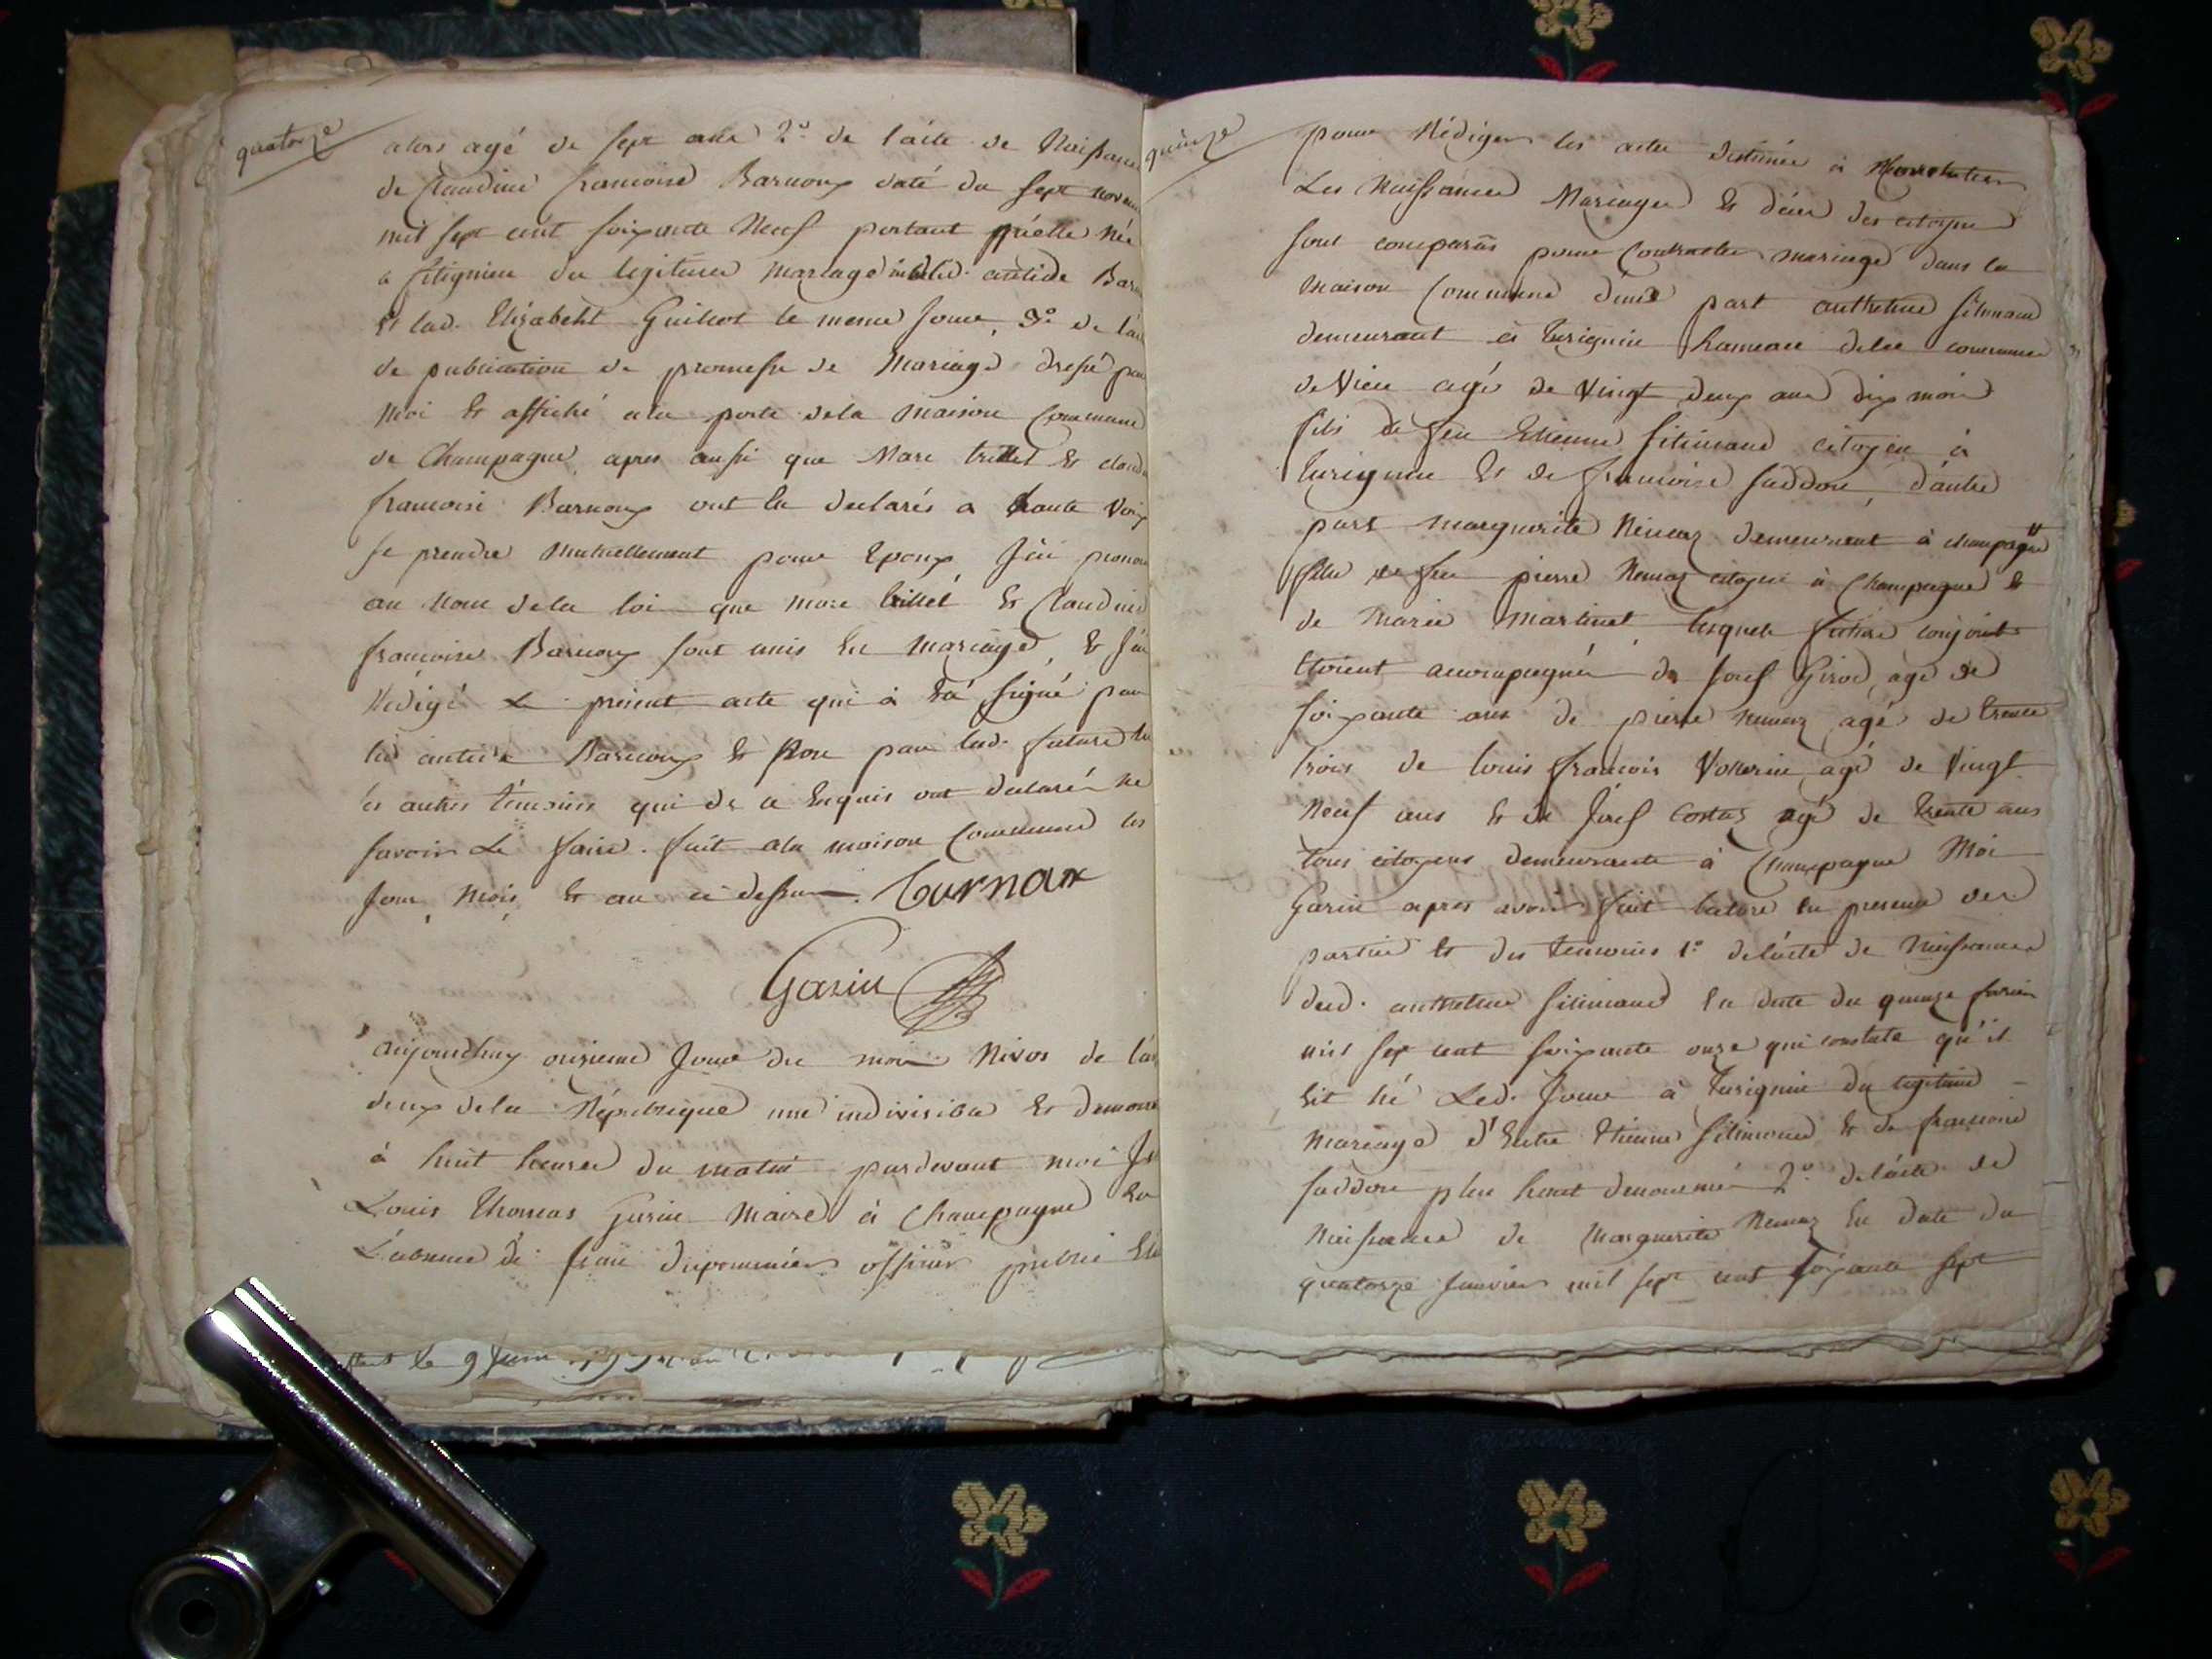 quatorze
alors agé de sept ans 2° de l'acte de Naissance
de Claudine francoise Barnoux daté du sept novem
mil sept cent soixante Neuf portant qu'elle née
a fitignieu du legitime mariage antide Bar
Et lad. Elizabeht Guillot le meme Jour, 3° de l'ac
de publication de promesse de Mariage dressé par
Moi Et affiché ala porte dela Maison Commune
de Champagne, apres aussi que Marc trillet Et claud
francoise Barnoux ont declarés a haute voix
se prendre Mutuellement pour Epoux J'ai pronon
au Nom dela loi que Marc trillet Et Claudine
francoise Barnoux sont unis En Mariage, & J'ai
Rédigé Le présent acte qui à Eté signé par
led antide Barnoux Et Non par lad. future Ni
les autres témoins qui de ce Enquis ont declarés ne
savoir Le faire. fait ala maison Commune les
Jour, Mois, Et an ci dessus. Burnox
Garin
aujourdhuy onzieme Jour du mois Nivos de l'an
deux dela République une indivisible Et democra
à huit heures du matin pardevant moi
Louis Thomas Garin Maire à Champagne En
L'absence de officier public Elu
le 9
quinze
pour Rédiger les actes destinés à
Les Naissances Mariages Et décés des citoyens
sont comparus pour Contracter mariage dans la
Maison Commune d'une part anthelme
demeurant à hameau dela commune
de Vieu agé de Vingt deux ans dix mois
fils de feu Etienne citoyen à
Et de francoise d'autre
part marguerite Nemoz demeurant à champagne
fille de feu pierre Nemoz citoyen à Champagne &
de Marie Martinet, lesquels futurs conjoints
Etoient accompagnés de Josef Girod, agé de
soixante ans de pierre Nemoz agé de trente
trois de louis francois agé de Vingt
Neuf ans Et de Josef Costaz agé de trente ans
tous citoyens demeurants à Champagne Moi
Garin apres avoir fait lecture En presence des
parties Et des temoins 1° delácte de Naissance
dud. anthelme En date du quinze
mil sept cent soixante onze qui constate qu'il
Est né Led. Jour à du legitime
Mariage d'Entre Etienne Et de francoise
plus haut denommés 2° delácte de
Naissance de Marguerite Nemoz En date du
quatorze Janvier mil sept cent soixante sept